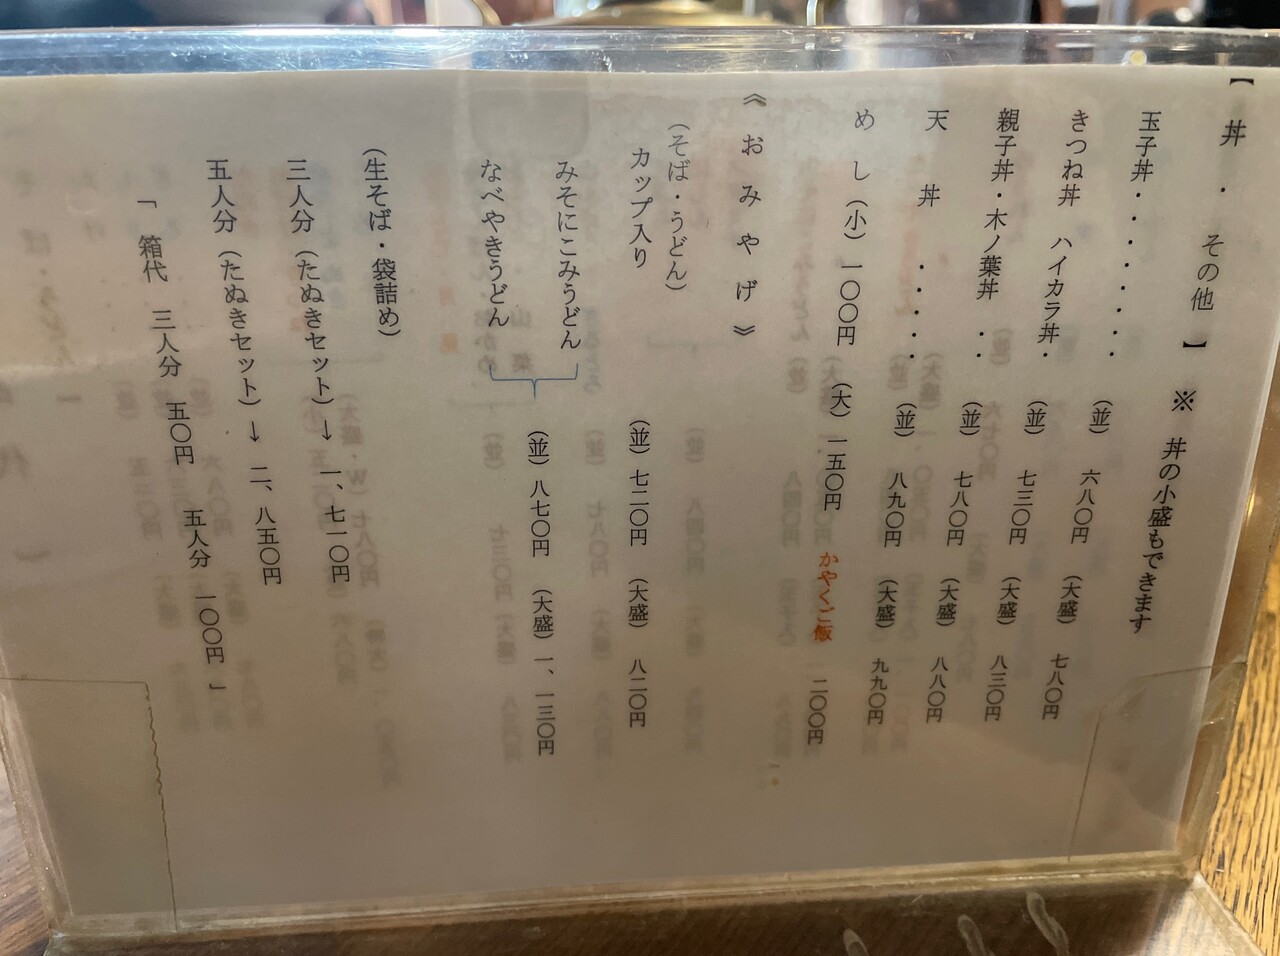 【 丼 ・ その他 】 ※ 丼の小盛もできます
玉子丼・・・・・・・ （並） 六八〇円 （大盛） 七八〇円
きつね丼 ハイカラ丼・ （並） 七三〇円 （大盛） 八三〇円
親子丼・木ノ葉丼 ・・ （並） 七八〇円 （大盛） 八八〇円
天 丼 ・・・・・ （並） 八九〇円 （大盛） 九九〇円
めし（小）一〇〇円 （大）一五〇円 かやくご飯 二〇〇円
《 お み や げ 》
（そば・うどん）
カップ入り （並）七二〇円 （大盛） 八二〇円
みそにこみうどん
なべやきうどん
（並）八七〇円 （大盛）一、一三〇円
（生そば・袋詰め）
三人分（たぬきセット）→ 一、七一〇円
五人分（たぬきセット）→ 二、八五〇円
「 箱代 三人分 五〇円 五人分 一〇〇円 」